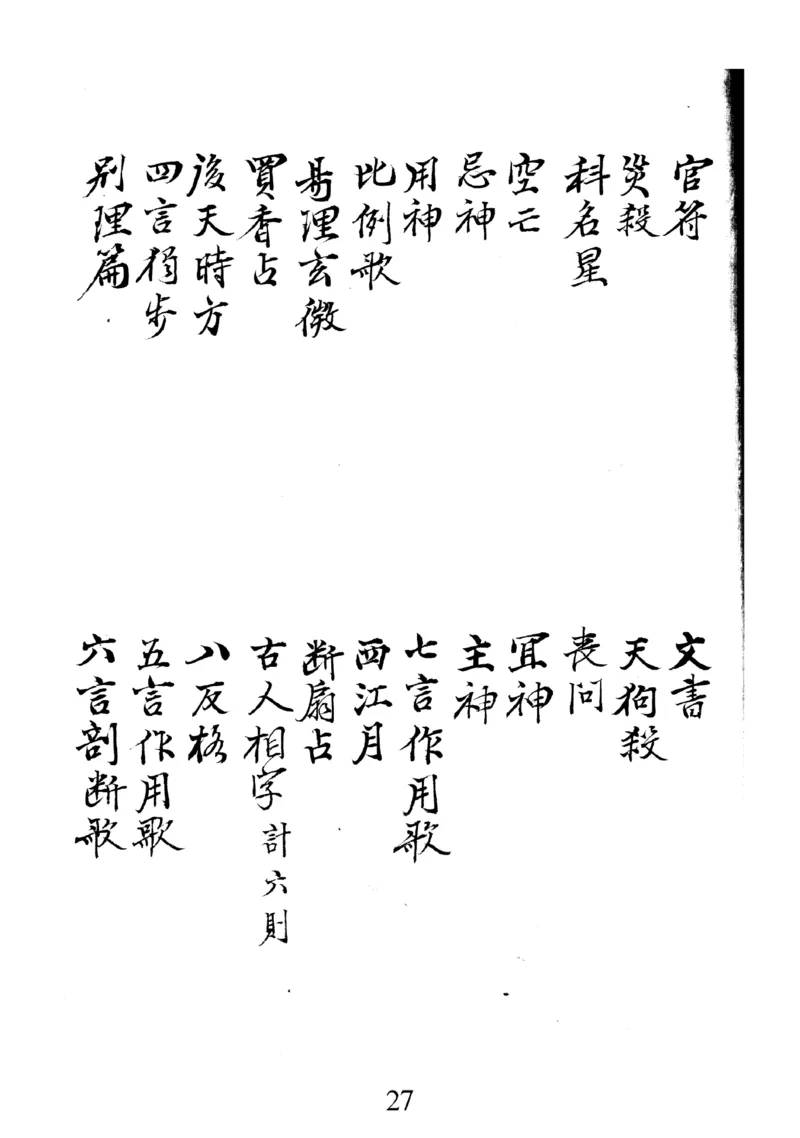 官符
文書
災殺
天狗殺
科名星
喪问
空亡
宜神
忌神
主神
用神
七言作用歌
比例歌
西江月
易理玄微
断扇占
買香占
古人相字 計六則
後天時方
八反格
四言獨步
五言作用歌
别理篇
六言剖断歌
27